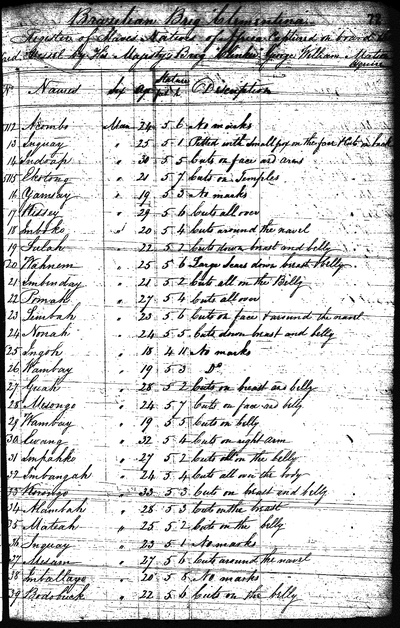 72
Brazilian Brig Clementina
Register of Slaves Natives of Africa Captured on board the
Vessel by His Majesty's Brig Clinker George William Matson
Esquire
No Names Sex Age Stature Description
12 Ncombo Man 24 5 6 No marks
13 Inguay " 25 5 1 Pitted with Small pox on the face & Cuts on back
14 Indoah " 30 5 5 Cuts on face and arms
15 Ehotong " 21 5 7 Cuts on Temples
16 Yamsay " 19 5 3 No marks
17 Kissey " 29 5 6 Cuts all over
18 Imboko " 20 5 4 Cuts around the navel
19 Sulah " 22 5 2 Cuts down breast and belly
20 Wahnem " 25 5 6 Large Scars down breast & belly
21 Imbinday " 21 5 2 Cuts all on the Belly
22 Tomah " 27 5 4 Cuts all over
23 Limbah " 23 5 6 Cuts on face & around the navel
24 Nonah " 24 5 5 Cuts down breast and belly
25 Ingoh " 18 4 11 No marks
26 Wambay " 19 5 3 Do
27 Guah " 28 5 2 Cuts on breast and belly
28 Mesongo " 24 5 7 Cuts on face and belly
29 Wambay " 19 5 5 Cuts on belly
30 Ewang " 32 5 4 Cuts on right arm
31 Impahko " 27 5 2 Cuts all on the belly
32 Imbangah " 24 5 4 Cuts all over the body
33 Korongo " 33 5 3 Cuts on breast and belly
34 Mambah " 28 5 3 Cuts on the breast
35 Mateah " 25 5 2 Cuts on the belly
36 Inguay " 23 5 1 No marks
37 Mesam " 27 5 6 Cuts around the navel
38 Imballayo " 20 5 8 No marks
39 Bodobuck " 22 5 6 Cuts on the belly